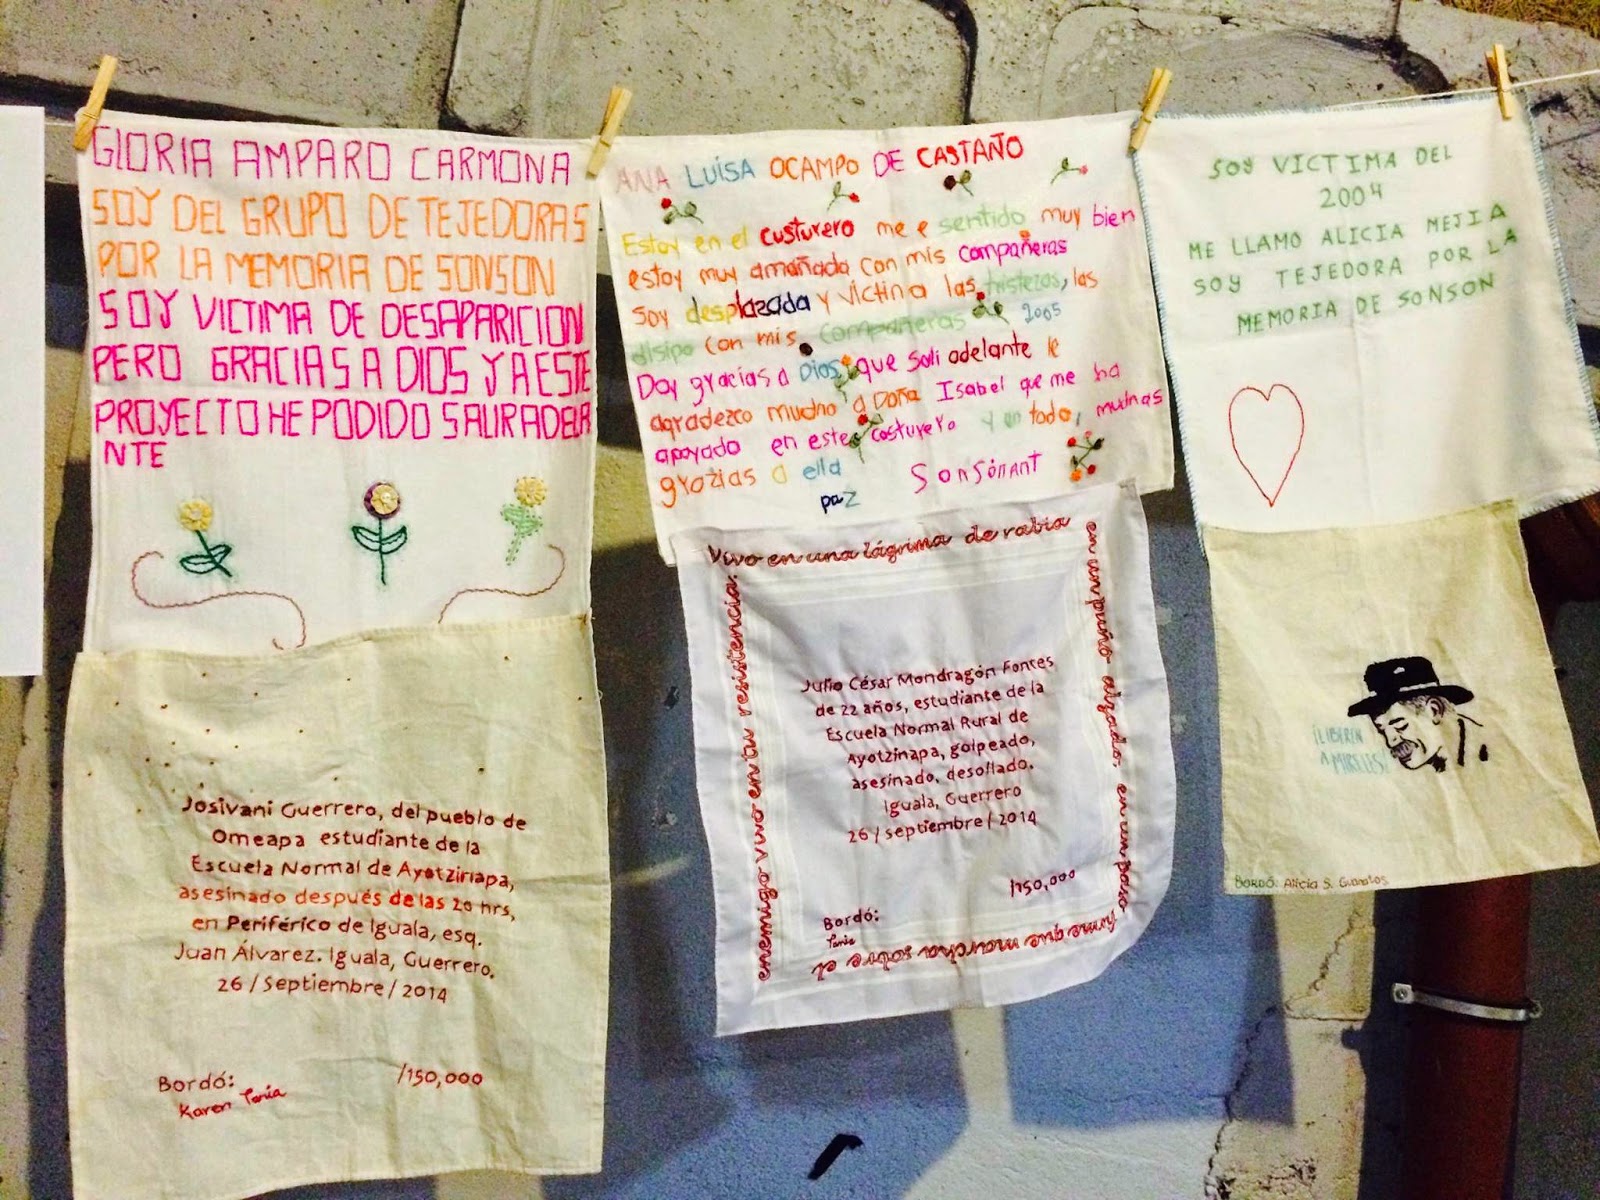 GLORIA AMPARO CARMONA
SOY DEL GRUPO DE TEJEDORAS
POR LA MEMORIA DE SONSON
SOY VICTIMA DE DESAPARICION
PERO GRACIAS A DIOS Y A ESTE
PROYECTO HE PODIDO SALIR ADELA
NTE
ANA LUÍSA OCAMPO DE CASTAÑO
Estoy en el custurero me e sentido muy bien
estoy muy amañada con mis compañeras
Soy desplazada y victina las tristezos, las
disipo con mis compañeras 2005
Doy gracias a Dios que sali adelante le
agradezco mucho a Doña Isabel que me ha
apoyado en este costurero y en todo, muchas
grazias a ella Sonsónant
paz
SOY VICTIMA DEL
2004
ME LLAMO ALICIA MEJIA
SOY TEJEDORA POR LA
MEMORIA DE SONSON
Josivani Guerrero, del pueblo de
Omeapa estudiante de la
Escuela Normal de Ayotzinapa,
asesinado después de las 20 hrs,
en Periférico de Iguala, esq.
Juan Álvarez. Iguala, Guerrero.
26 / Septiembre / 2014
Bordó: /150,000
Karen Tania
Vivo en una lágrima de rabia
en un puño alzado, en un paso
firme que marcha sobre el
enemigo vivo en tu resistencia.
Julio César Mondragón Fontes
de 22 años, estudiante de la
Escuela Normal Rural de
Ayotzinapa, golpeado,
asesinado, desollado.
Iguala, Guerrero
26 / septiembre / 2014
/150,000
Bordó:
Tania
¡LIBEREN
A MIRELES!
BORDÓ: Alicia S.